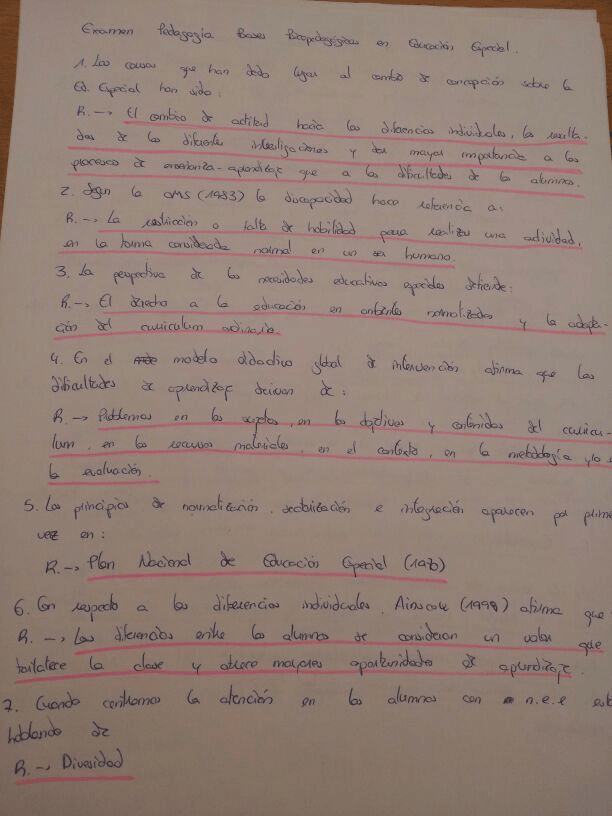 Examen Pedagogía Bases Psicopedagógicas en Educación Especial.
1. Las causas que han dado lugar al cambio de concepción sobre la
Ed. Especial han sido:
R. → El cambio de actitud hacia las diferencias individuales, los resulta-
dos de las diferentes investigaciones y dar mayor importancia a los
procesos de enseñanza-aprendizaje que a las dificultades de los alumnos.
2. Según la OMS (1983) la discapacidad hace referencia a:
R. → La restricción o falta de habilidad para realizar una actividad,
en la forma considerada normal en un ser humano.
3. La perspectiva de las necesidades educativas especiales defiende:
R. → El derecho a la educación en ambientes normalizados y la adapta-
ción del curriculum ordinario.
4. En el modelo didactico global de intervención afirma que las
dificultades de aprendizaje derivan de:
R. → Problemas en los sujetos, en los objetivos y contenidos del curricu-
lum, en los recursos materiales, en el contexto, en la metodología y/o e
la evaluación.
5. Los principios de normalización, sectorización e integración aparecen por prime
vez en:
R. → Plan Nacional de Educación Especial (1978)
6. Con respecto a las diferencias individuales, Ainscow (1998) afirma que
R. → Las diferencias entre los alumnos se consideran un valor que
fortalece la clase y ofrece mayores oportunidades de aprendizaje.
7. Cuando centramos la atención en los alumnos con n.e.e est
hablando de
R. → Diversidad